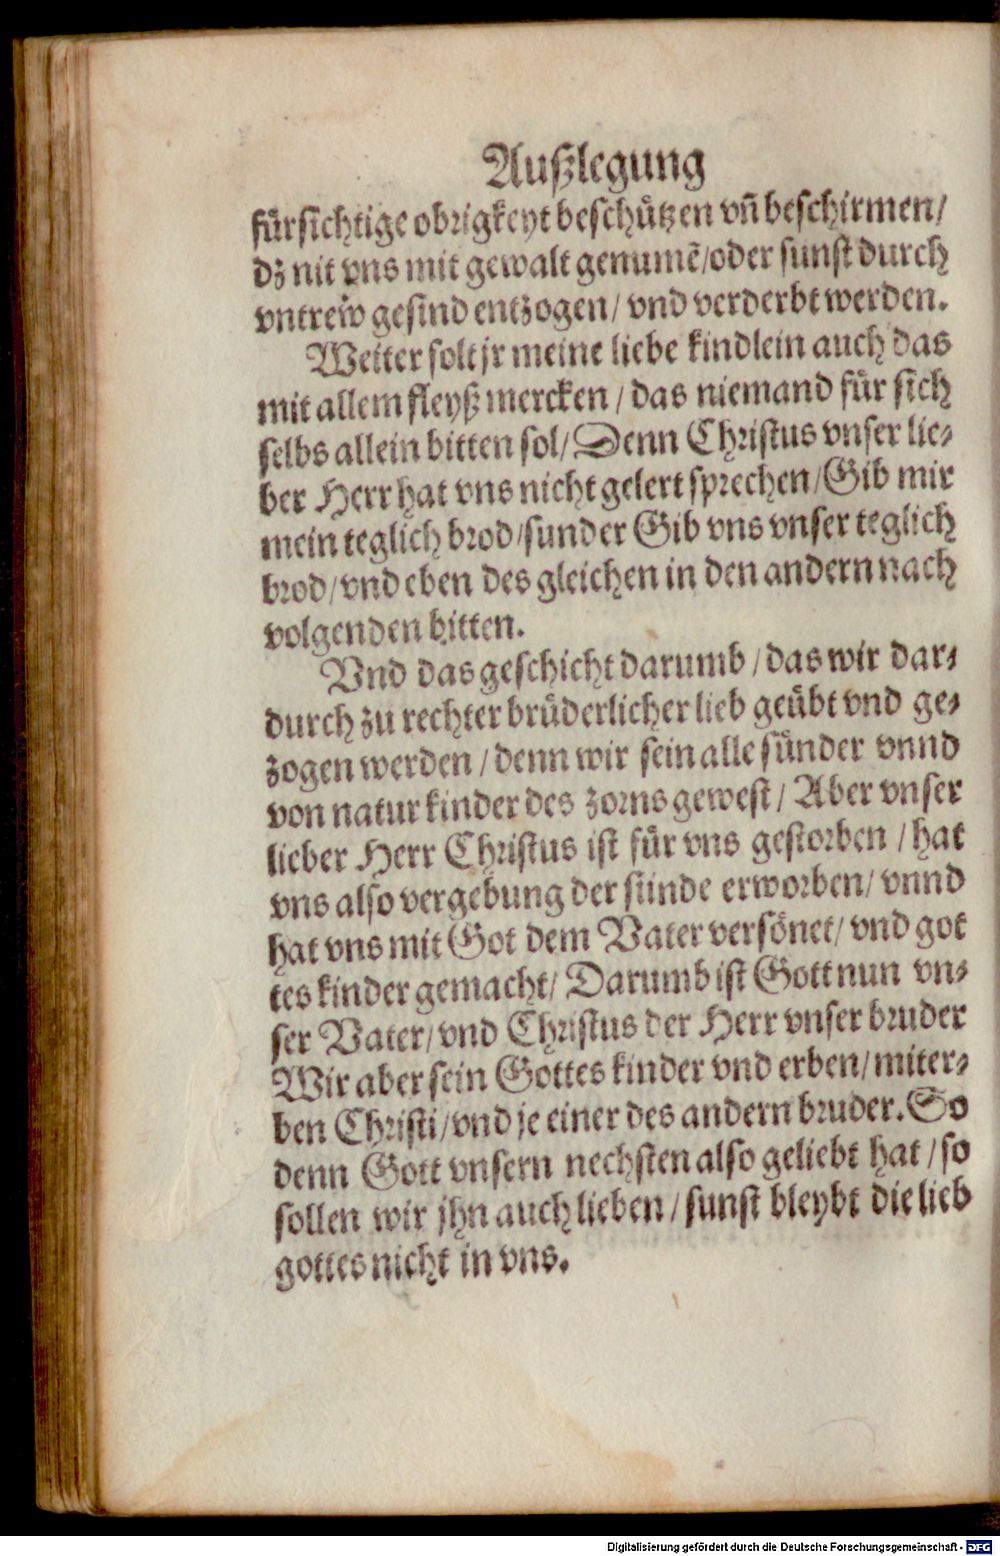 Außlegung
fürsichtige obrigkeyt beschützen vñ beschirmen/
dz nit vns mit gewalt genumẽ/oder sunst durch
vntrew gesind entzogen/ vnd verderbt werden.
Weiter solt jr meine liebe kindlein auch das
mit allem fleyß mercken / das niemand für sich
selbs allein bitten sol/ Denn Christus vnser lie-
ber Herr hat vns nicht gelert sprechen/Gib mir
mein teglich brod/sunder Gib vns vnser teglich
brod/vnd eben des gleichen in den andern nach
volgenden bitten.
Vnd das geschicht darumb /das wir dar-
durch zu rechter brüderlicher lieb geübt vnd ge-
zogen werden / denn wir sein alle sünder vnnd
von natur kinder des zorns gewest / Aber vnser
lieber Herr Christus ist für vns gestorben / hat
vns also vergebung der sünde erworben/ vnnd
hat vns mit Got dem Vater versönet/ vnd got
tes kinder gemacht/ Darumb ist Gott nun vn-
ser Vater/ vnd Christus der Herr vnser bruder
Wir aber sein Gottes kinder vnd erben/ miter-
ben Christi/vnd je einer des andern bruder. So
denn Gott vnsern nechsten also geliebt hat / so
sollen wir jhn auch lieben / sunst bleybt die lieb
gottes nicht in vns.
Digitalisierung gefördert durch die Deutsche Forschungsgemeinschaft - DFG